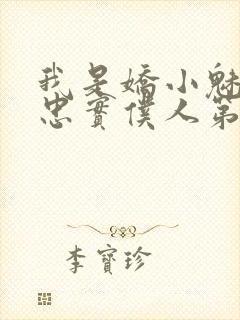 我是嬌小魅
忠實僕人第
李寶珍